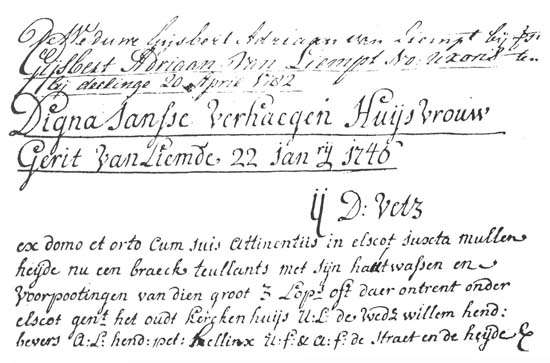 De Wed: duwe Gijsbert Adriaan van Liempt bij
Gijsbert Adriaan van Liempt No: uxoris
bij deelinge 20 April 1782
Digna Jansse Verhaegen Huijsvrouw
Gerit Van Liemde 22 Janrij 1746
ij D: Vetz
ex domo et orto cum suis attinentiis in elscot juxta mullen
heijde nu een braeck teullants met sijn houtwassen en
voorpootingen van dien groot 3 Lopz oft daer ontrent onder
elscot gent het oudt kercken huijs U: L: de Wedz willem hend:
bevers A: L: hend: pet: kellinx U: f: & a: f: de Straet en de heijde &